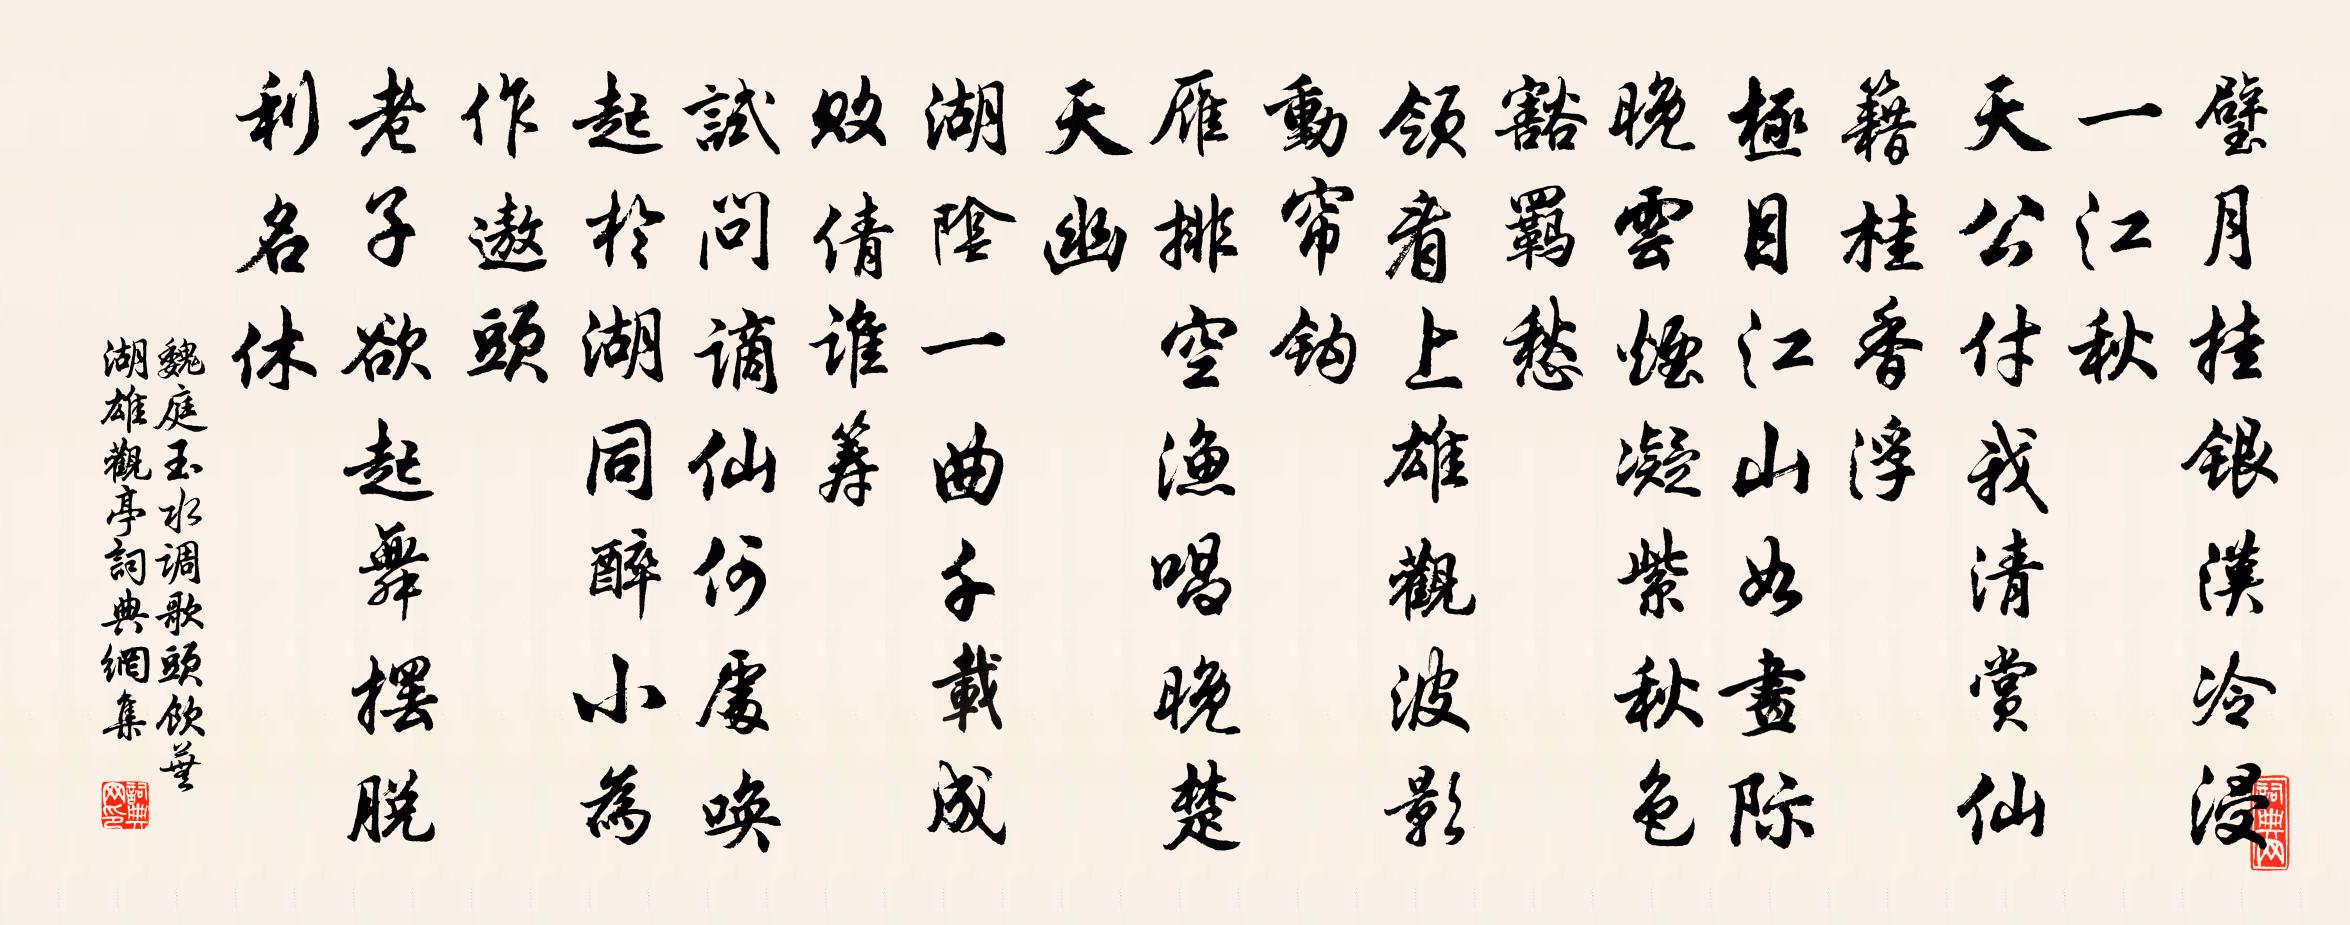 璧月挂銀漢冷浸
一江秋
天公付我清賞仙
籍桂香浮
極目江山如畫际
晚雲煙凝紫秋色
豁羈愁
領看上雄觀波影
動帘鈎
雁排空漁唱晚楚
天幽
湖陰一曲千載成
敗倩誰筹
試問謫仙何處喚
起於湖同醉小為
作遨頭
老子欲起舞擺脱
利名休
魏庭玉水调歌頭飲蕪
湖雄觀亭詞典網集
詞典网
詞典网印